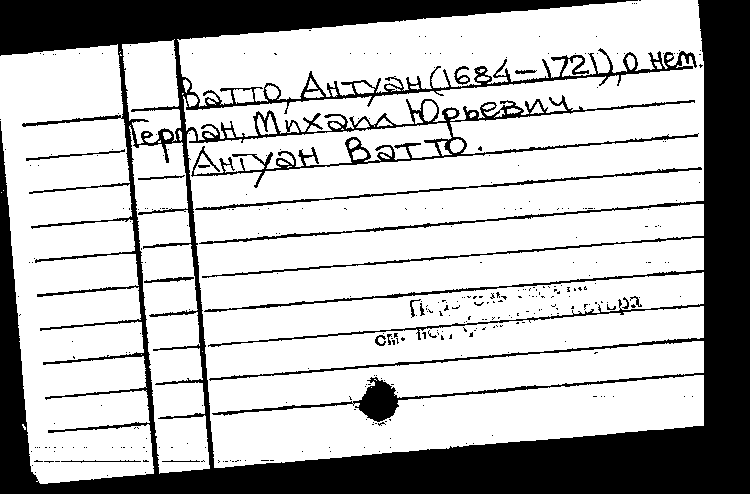 Ватто, Антуан (1684–1721), о нем.
Герман, Михаил Юрьевич.
Антуан Ватто.
см. под
автора